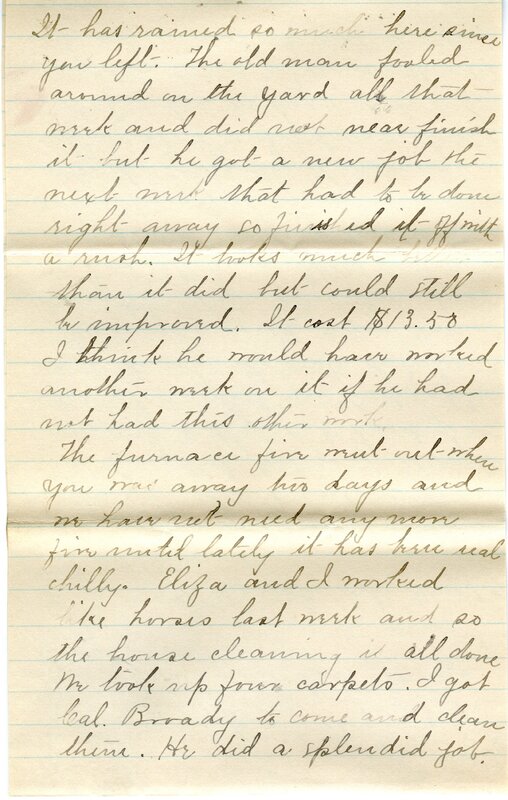 It has rained so much here since
you left. The old man fooled
around on the yard all that
week and did not near finish
it but he got a new job the
next week that had to be done
right away so finished it off with
a rush. It looks much
than it did but could still
be improved. It cost $13.50
I think he would have worked
another week on it if he had
not had this other work.
The furnace fire went out when
you was away two days and
we have not need any more
fire until lately it has been real
chilly. Eliza and I worked
like horses last week and so
the house cleaning is all done
We took up four carpets. I got
Cal. Broady to come and clean
them. He did a splendid job.